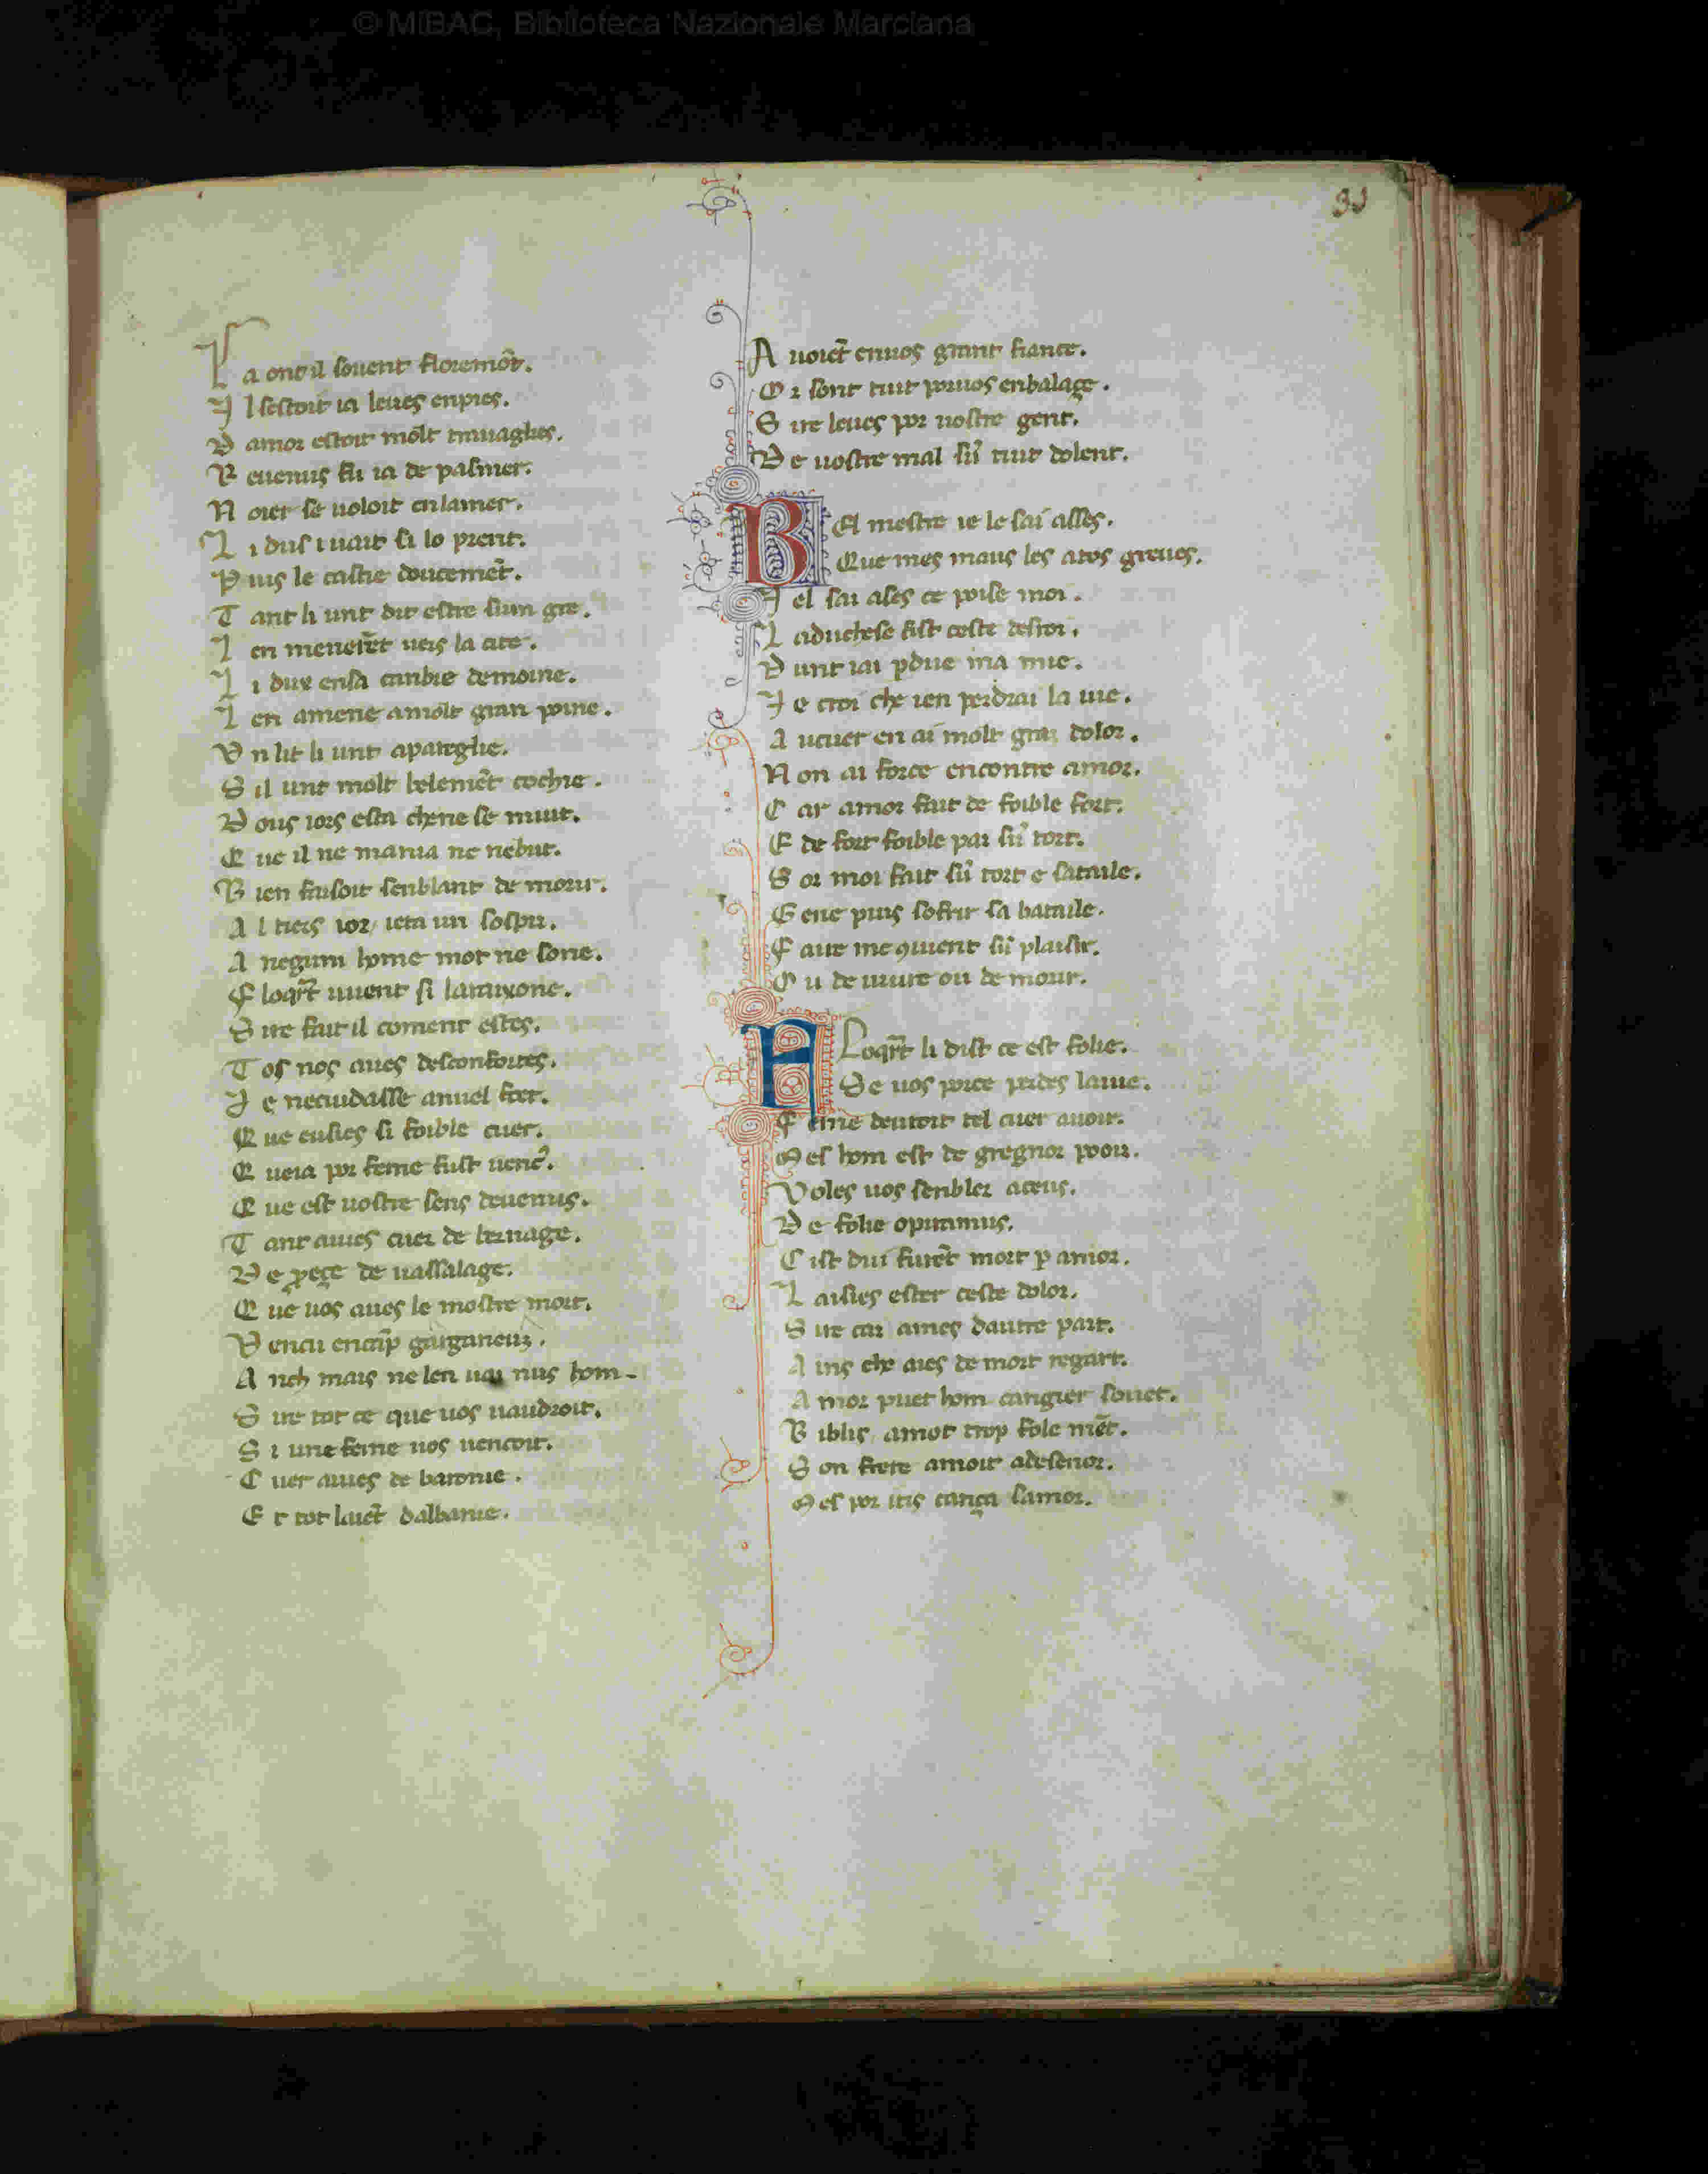 © MiBAC, Biblioteca Nazionale Marciana
31
La ont il souent floremōt.
Il sestoit ia leues enpies.
D amor estoit mōlt trauaghes.
R euenus fu ia de pasmer.
N oier se uoloit en lamer.
L i dus i uait si lo prent.
P uis le castie doucemēt.
T ant li unt dit estre sum gre.
I en menerēt uers la cite.
L i dux ensa canbre demoine.
I en amene amolt gran poine.
V n lit li unt apareghe.
S il unt molt belemēt cochie.
D ous iors esta chene se muit.
Q ue il ne mania ne nebut.
B ien faisoit senblant de morir.
A l tiers ior ieta un sospir.
A negum home mot ne sone.
F loqrt uuent si laraixone.
S ire fait il coment estes.
T os nos aues desconfortes.
I e necuidasse anuel foer.
Q ue eusies si foible cuer.
Q ueia por feme fust uenc᾿.
Q ue est uostre sens deuenus.
T ant auies cuer de bernage.
De p̄oeçe de uassalage.
Q ue uos aues le mostre mort.
V encu encāp garganeuz.
A nch mais ne len uai nus hom-
S ire tot ce que uos uaudroit.
S i une feme uos uencoit.
C uer auies de baronie.
E t tot lauēt dalbanie.
A uoiēt enuos grant fiance.
O r sont tuit por uos enbalage.
S ire leues por uostre gent.
De uostre mal sū tuit dolent.
BEl mestre ie le sai asses.
Que mes maus les a tos greues.
I el sai ases ce poise moi.
L aduchese fist ceste desroi.
D unt iai pdue ma mie.
I e croi che ien perdrai la uie.
A ucuer en ai molt gran dolor.
N on ai force encontre amor.
C ar amor fait de foible fort.
E de fort foible par sū tort.
S or moi fait sū tort e sataile.
G ene puis sofrir sa bataile.
F aire me ꝯuient sū plaisir.
O u de uiure ou de morir.
FLoqrt li dist ce est folie.
Se uos porce perdes lauie.
F eme deuroit tel cuer auoir.
Mes hom est de gregnor pooir.
Voles uos senbler aceus.
De folie opiramus.
C ist dui furēt mort p amor.
L aisies ester ceste dolor.
S ire car ames dautre part.
A ins che aies de mort regart.
A mor puet hom cangier souēt.
B iblis amot trop fole mēt.
S on frere amoit adesenor.
Mes por itis cança samor.